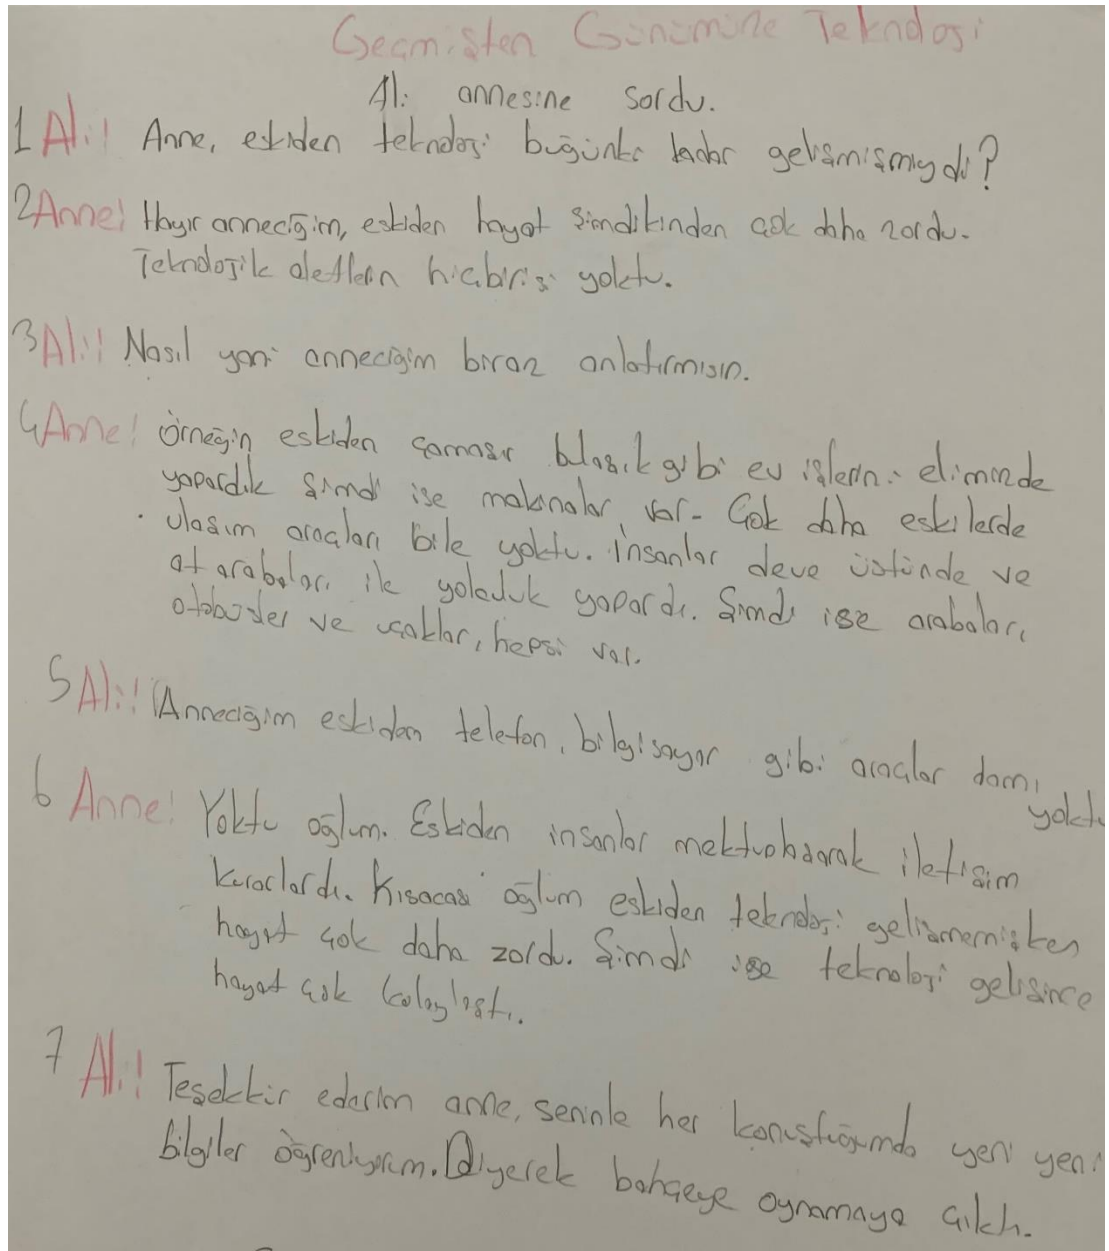 Geçmişten Günümüze Teknoloji
Ali annesine sordu.
1 Ali: Anne, eskiden teknoloji bugünkü kadar gelişmişmiydi?
2 Anne: Hayır anneciğim, eskiden hayat şimdikinden çok daha zordu.
Teknolojik aletlerin hiçbirisi yoktu.
3 Ali: Nasıl yani anneciğim biraz anlatırmısın.
4 Anne: Örneğin eskiden çamaşır bulaşık gibi ev işlerini elimizde
yapardık şimdi ise makinalar var. Çok daha eskilerde
ulaşım araçları bile yoktu. İnsanlar deve üstünde ve
at arabaları ile yolculuk yapardı. Şimdi ise arabalar,
otobüsler ve uçaklar, hepsi var.
5 Ali: Anneciğim eskiden telefon, bilgisayar gibi araçlar damı
yoktu
6 Anne: Yoktu oğlum. Eskiden insanlar iletişim
kurarlardı. Kısacası oğlum eskiden teknoloji gelişmemişken
hayat çok daha zordu. Şimdi ise teknoloji gelişince
hayat çok kolaylaştı.
7 Ali: Teşekkür ederim anne, seninle her konuştuğumda yeni yeni
bilgiler öğreniyorum. Diyerek bahçeye oynamaya çıktı.